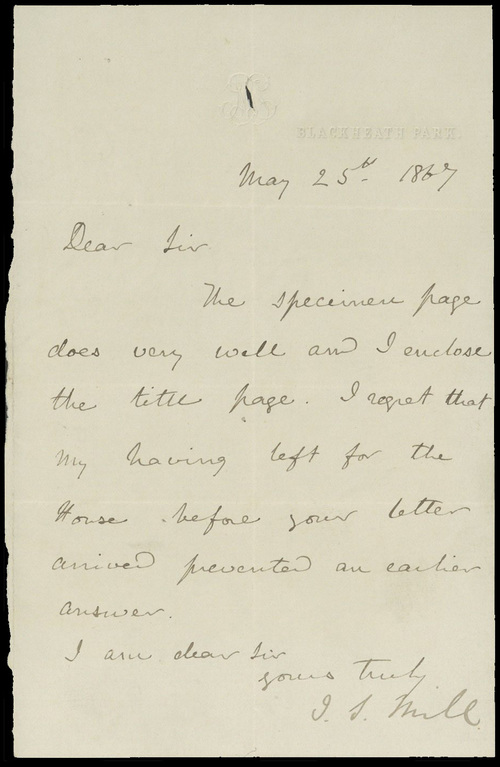 BLACKHEATH PARK.
May 25th 1867
Dear Sir
The specimen page
does very well and I enclose
the title page. I regret that
my having left for the
House before your letter
arrived prevented an earlier
answer.
I am dear Sir
yours truly
J. S. Mill